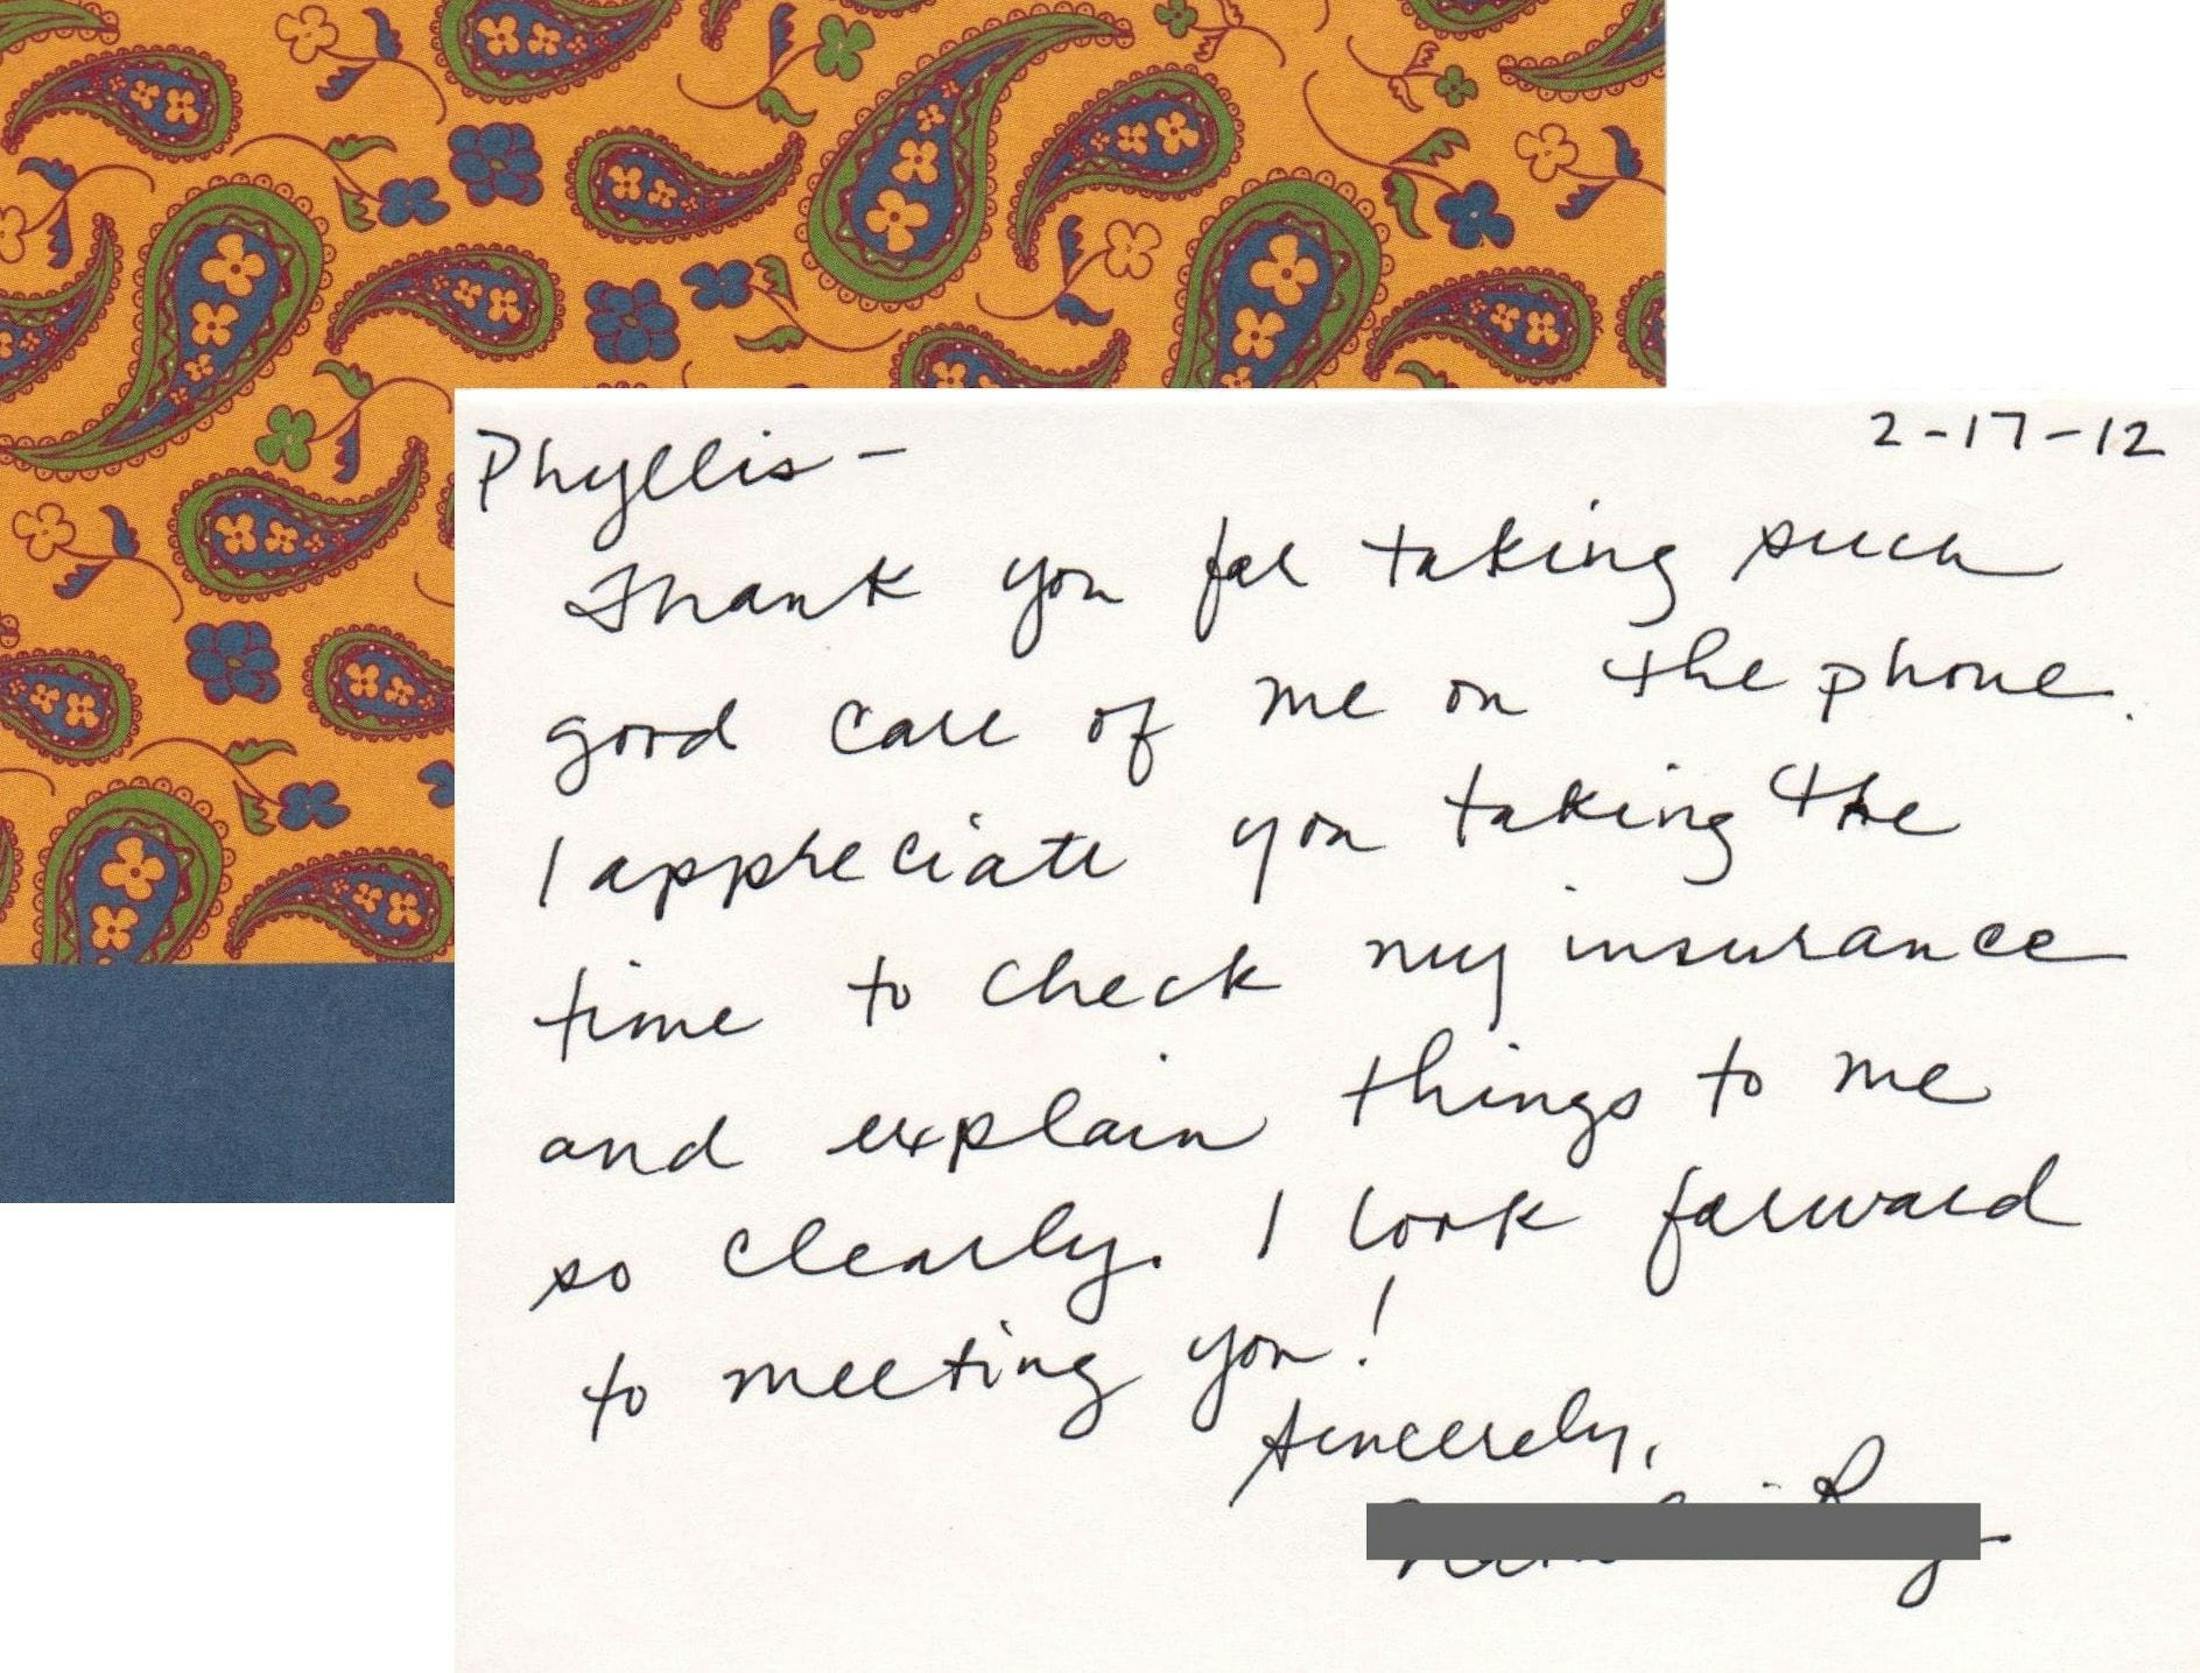 2-17-12
Phyllis -
Thank you for taking such
good care of me on the phone.
I appreciate you taking the
time to check my insurance
and explain things to me
so clearly. I look forward
to meeting you!
Sincerely,